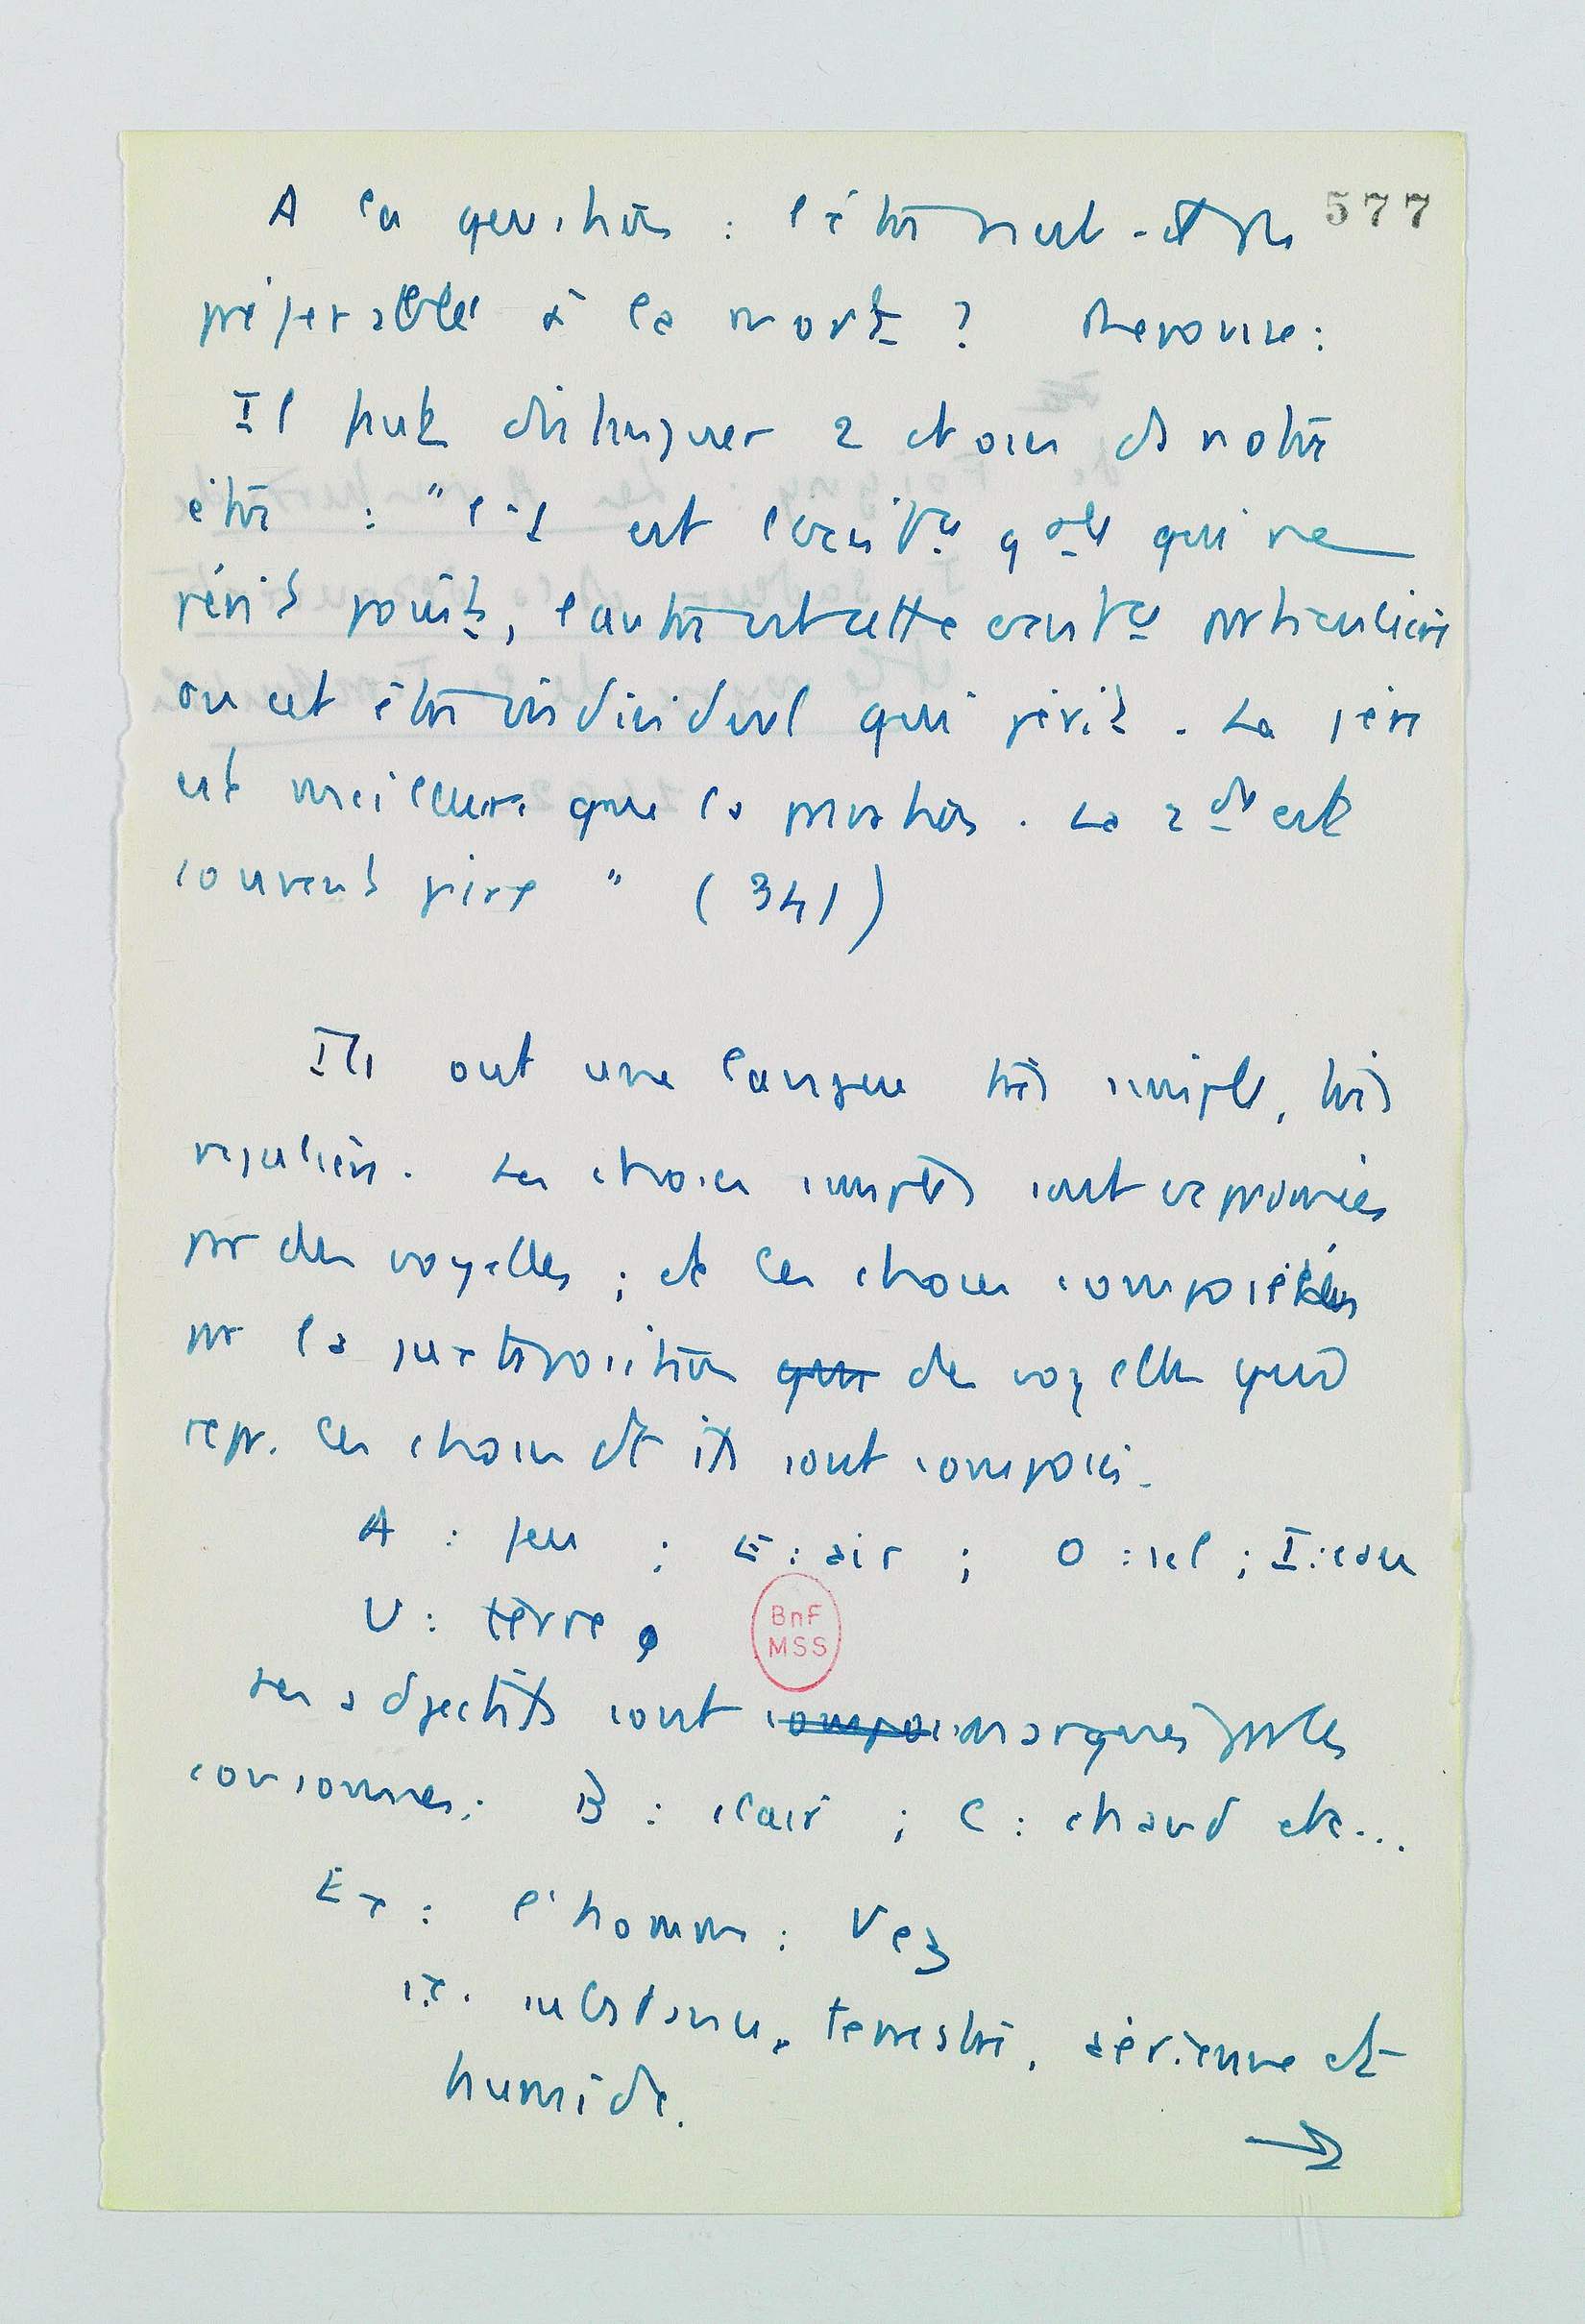 577
A la question : l'être n'est-il pas
préférable à la mort ? Réponse :
Il faut distinguer 2 choses ds notre
être : " l'1 est l'exist.ce gale qui ne
périt point, l'autre est cette exist.ce particulière
ou cet être individuel qui périt . La 1ère
est meilleure que la privation . La 2de est
souvent pire " (341)
Ils ont une langue très simple, très
régulière. Les choses simples sont exprimées
par des voyelles ; et les choses composées
par la juxtaposition qui des voyelles qui
repr. les choses dt ils sont composés.
A : feu ; E : air ; O : sel ; I : eau
U : terre
Les adjectifs sont compos marqués par les
consonnes : B : clair ; C : chaud etc...
Ex : l'homme : Vez
i.e. substance, terrestre, aérienne et
humide.
→
BnF
MSS